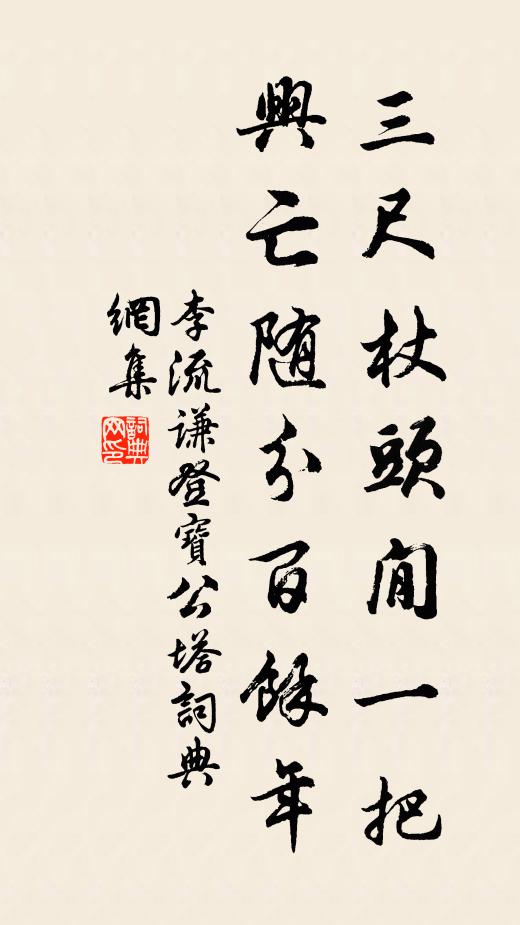 三尺杖頭閒一把
興亡随分百餘年
李流謙登寶公塔詞典
網集
詞典
网印